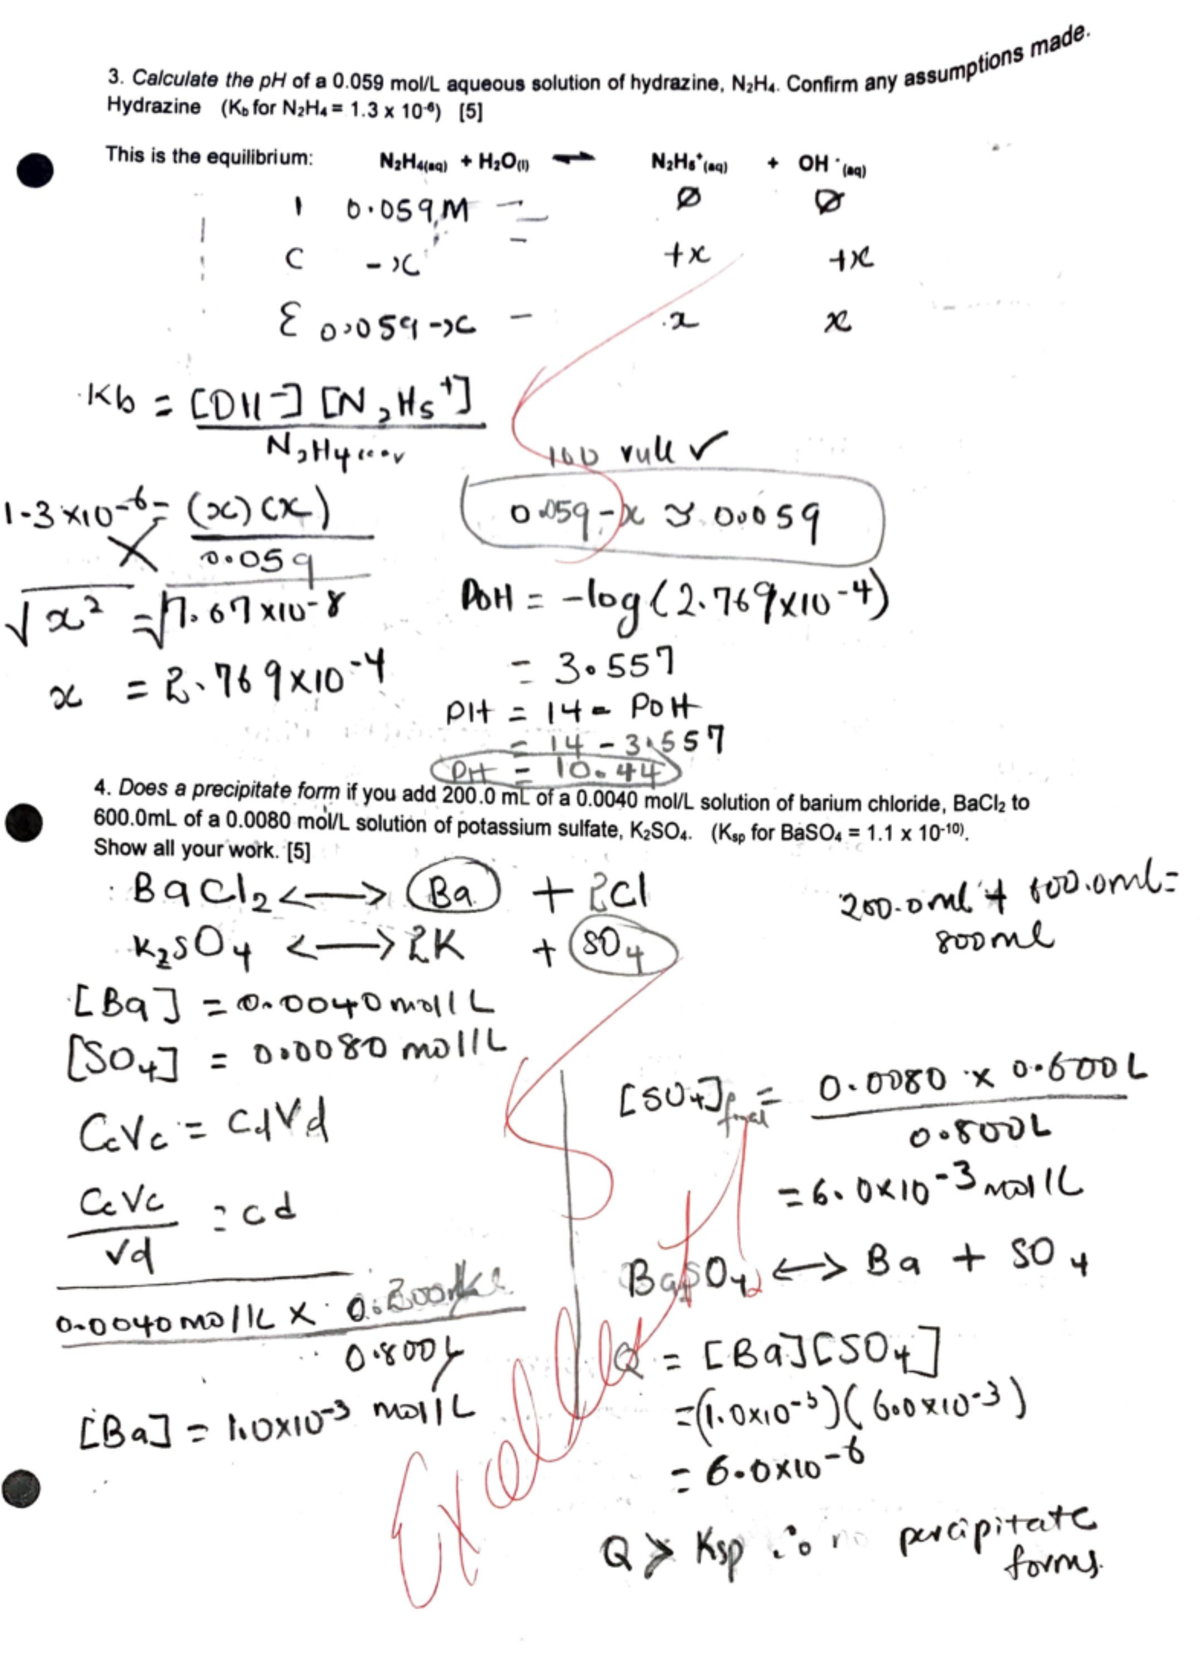 3. Calculate the pH of a 0.059 mol/L aqueous solution of hydrazine, N₂H₄. Confirm any assumptions made.
Hydrazine (Kb for N₂H₄ = 1.3 x 10⁻⁶) [5]
This is the equilibrium: N₂H₄(aq) + H₂O(l) ⇌ N₂H₅⁺(aq) + OH⁻(aq)
I 0.059M – ∅ ∅
C -x – +x +x
E 0.059-x – x x
Kb = [OH-] [N₂H₅⁺]
N₂H₄
100 rule ✓
1.3x10⁻⁶ = (x)(x)
0.059
0.059-x ≈ 0.059
√x² = √7.67x10⁻⁸
POH = -log(2.769x10⁻⁴)
x = 2.769x10⁻⁴
= 3.557
PH = 14 - POH
= 14 - 3.557
PH = 10.44
4. Does a precipitate form if you add 200.0 mL of a 0.0040 mol/L solution of barium chloride, BaCl₂ to
600.0mL of a 0.0080 mol/L solution of potassium sulfate, K₂SO₄. (Ksp for BaSO₄ = 1.1 x 10⁻¹⁰).
Show all your work. [5]
BaCl₂ <—> Ba + 2Cl
200.0ml + 600.0ml =
800ml
K₂SO₄ <—> 2K + SO₄
[Ba] = 0.0040 mol/L
[SO₄] = 0.0080 mol/L
CcVc = CdVd
CcVc = cd
Vd
0.0040 mol/L x 0.200
0.800L
[Ba] = 1.0x10⁻³ mol/L
[SO₄]final = 0.0080 x 0.600L
0.800L
= 6.0x10⁻³ mol/L
BaSO₄ <—> Ba + SO₄
Q = [Ba][SO₄]
= (1.0x10⁻³)(6.0x10⁻³)
= 6.0x10⁻⁶
Q > Ksp ∴ percipitate
forms.
Excellent